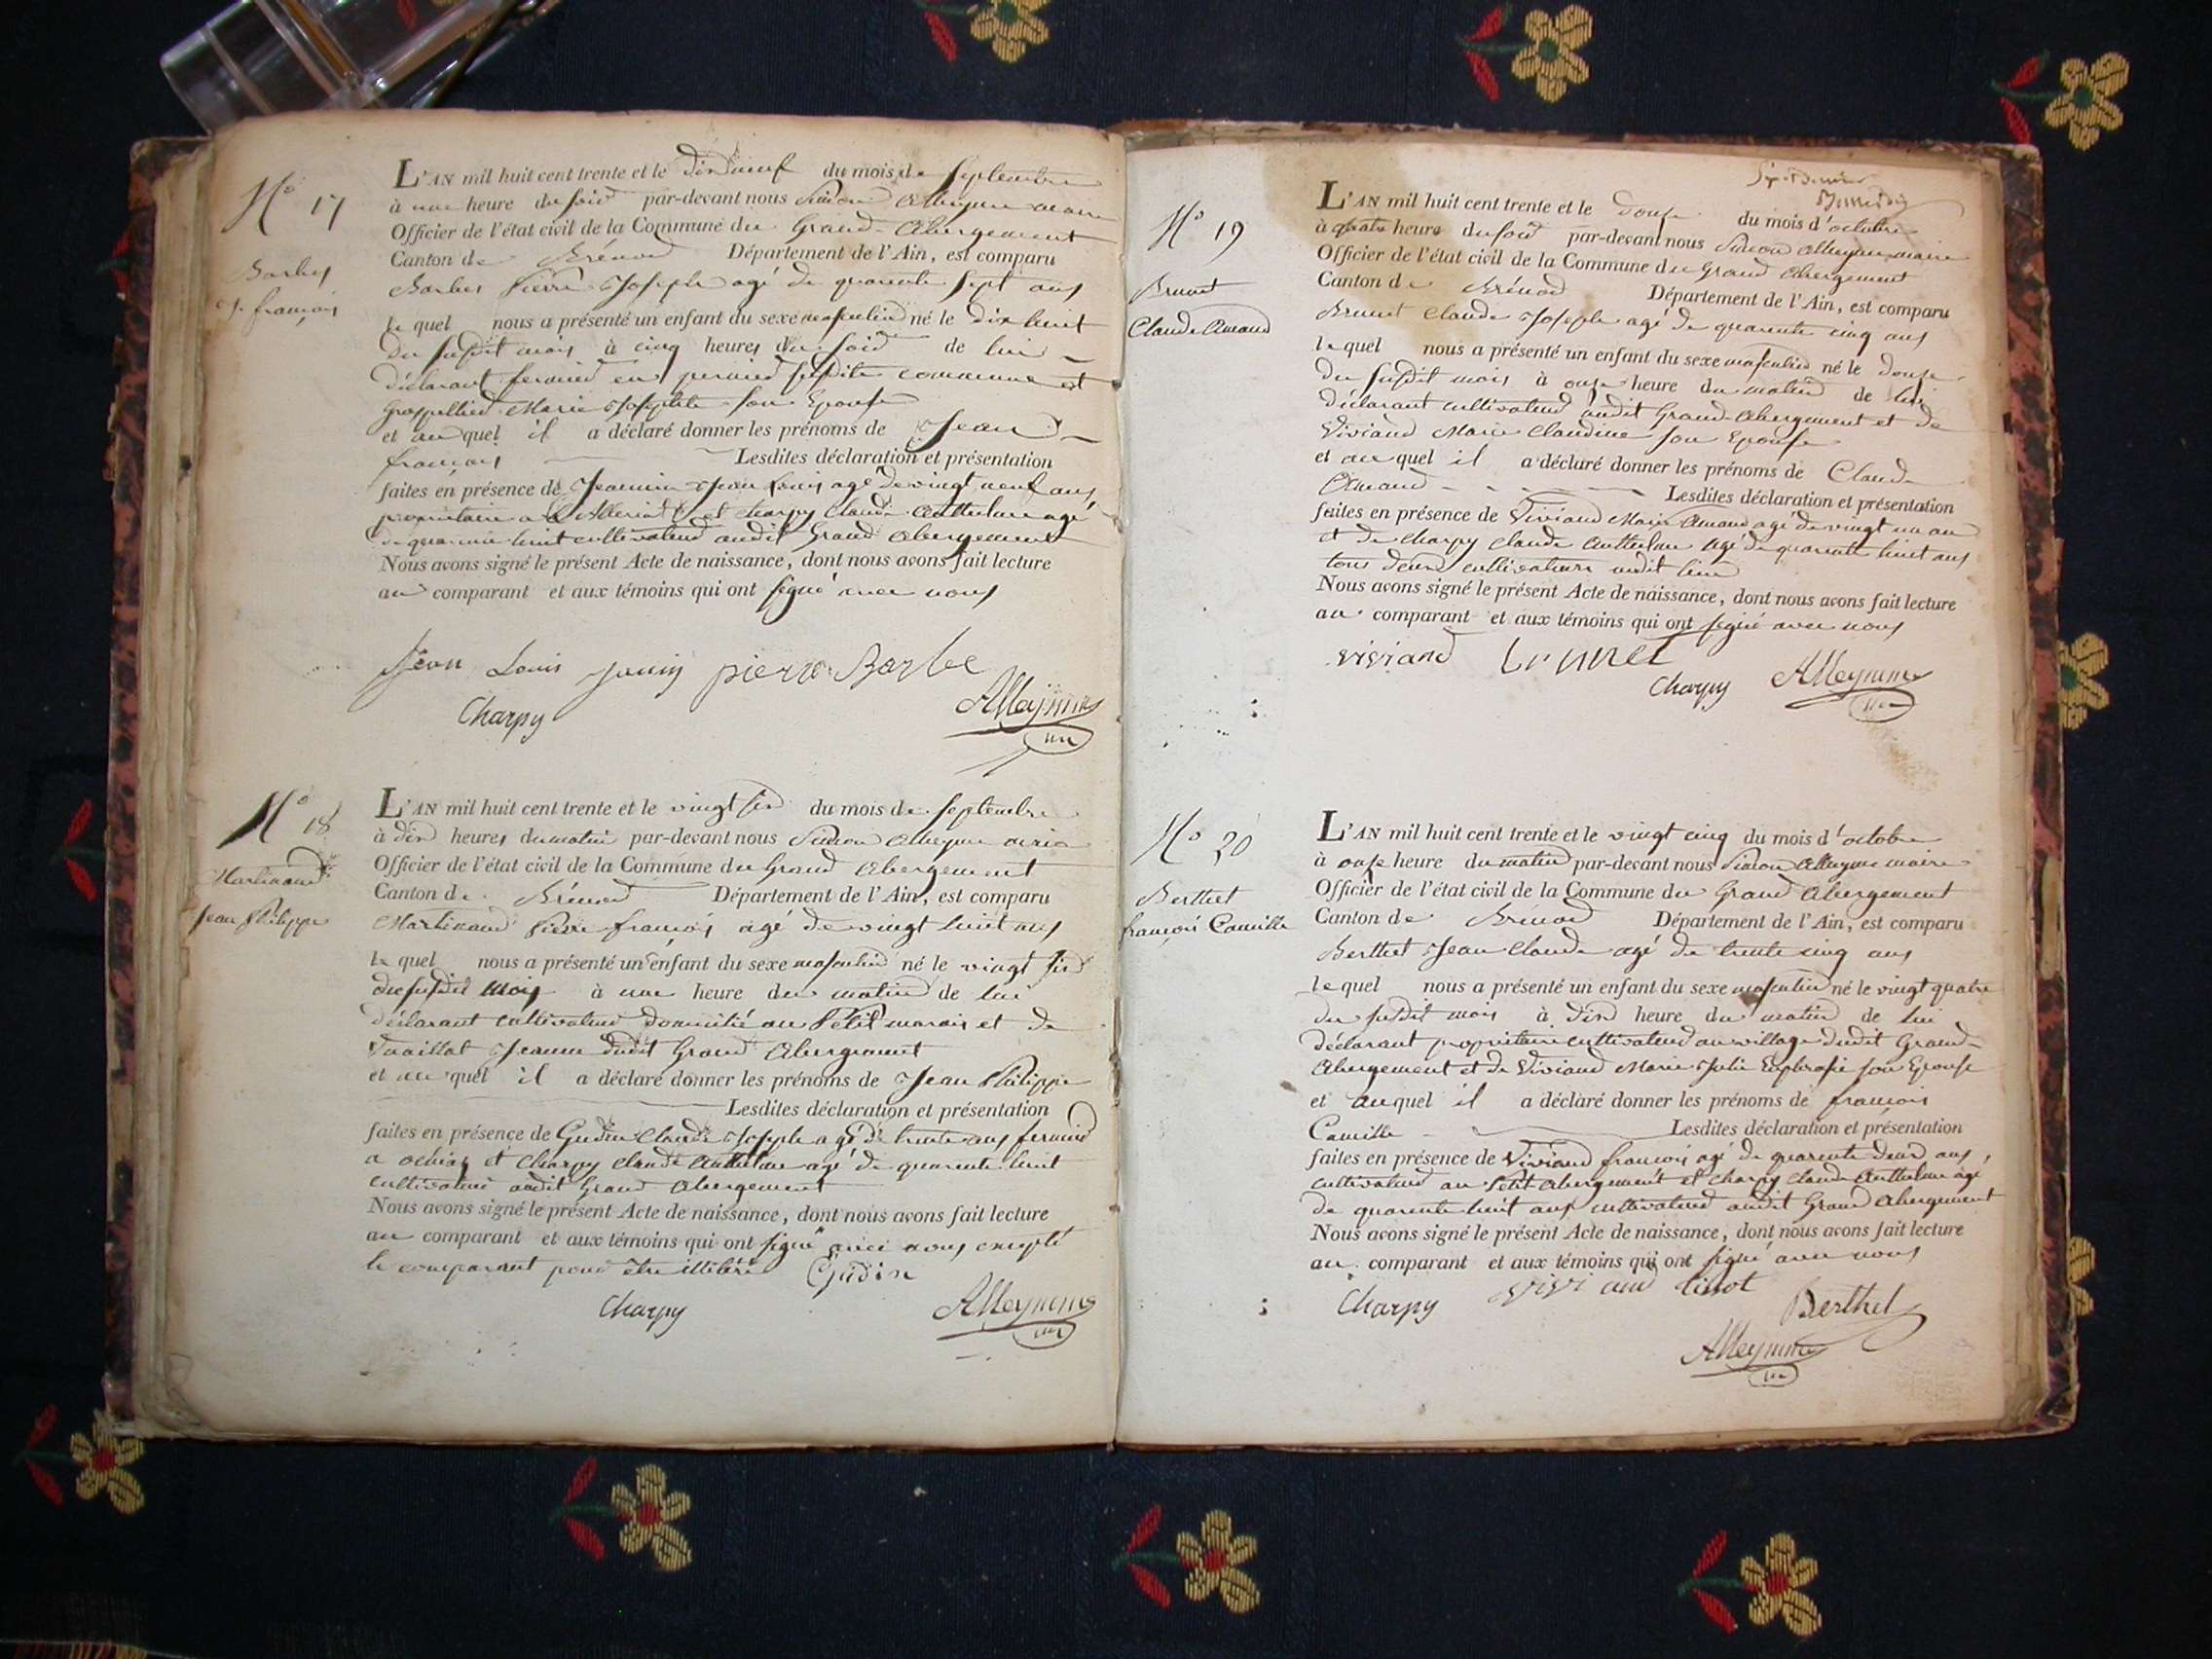 N° 17
Barbe
J. françois
L'AN mil huit cent trente et le dix neuf du mois de Septembre
à une heure du soir par-devant nous Simon Alleyme maire
Officier de l'état civil de la Commune du Grand-Abergement
Canton de Brénod Département de l'Ain, est comparu
Barbe Pierre Joseph agé de quarante sept ans
le quel nous a présenté un enfant du sexe masculin né le dix huit
du susdit mois à cinq heures du soir de lui
déclarant fermier en susdite commune et
Marie Josephte son Epouse
et au quel il a déclaré donner les prénoms de Jean
françois Lesdites déclaration et présentation
faites en présence de Jean Louis agé de vingt neuf ans
propriétaire a et Charpy Claude Anthelme agé
de quarante huit cultivateur audit Grand Abergement
Nous avons signé le présent Acte de naissance, dont nous avons fait lecture
au comparant et aux témoins qui ont signé avec nous
Jean Louis pierre Barbe
Charpy Alleyme
N° 18
Martinand
Jean Philippe
L'AN mil huit cent trente et le vingt six du mois de Septembre
à dix heures du matin par-devant nous Simon Alleyme maire
Officier de l'état civil de la Commune du Grand Abergement
Canton de Brénod Département de l'Ain, est comparu
Martinand Pierre françois agé de vingt huit ans
le quel nous a présenté un enfant du sexe masculin né le vingt six
du susdit mois à une heure du matin de lui
déclarant cultivateur domicilié au Petit marais et de
Jeanne dudit Grand Abergement
et au quel il a déclaré donner les prénoms de Jean Philippe
Lesdites déclaration et présentation
faites en présence de Gudin Claude Joseph agé de trente ans fermier
a et Charpy Claude Anthelme agé de quarante huit
cultivateur audit Grand Abergement
Nous avons signé le présent Acte de naissance, dont nous avons fait lecture
au comparant et aux témoins qui ont signé avec nous excepté
le comparant pour être illitéré Gudin
Charpy Alleyme
N° 19
Brunet
Claude Amand
L'AN mil huit cent trente et le douze du mois d'octobre
à quatre heure du soir par-devant nous Simon Alleyme maire
Officier de l'état civil de la Commune du Grand Abergement
Canton de Brénod Département de l'Ain, est comparu
Brunet Claude Joseph agé de quarante cinq ans
le quel nous a présenté un enfant du sexe masculin né le douze
du susdit mois à onze heure du matin de lui
déclarant cultivateur audit Grand-Abergement et de
Viviand Marie Claudine son Epouse
et au quel il a déclaré donner les prénoms de Claude
Amand Lesdites déclaration et présentation
faites en présence de Viviand Marie Amand agé de vingt un an
et de Charpy Claude Anthelme agé de quarante huit ans
tous deux cultivateurs audit lieu
Nous avons signé le présent Acte de naissance, dont nous avons fait lecture
au comparant et aux témoins qui ont signé avec nous
viviand brunet
Charpy Alleyme
N° 20
Berthet
françois Camille
L'AN mil huit cent trente et le vingt cinq du mois d'octobre
à onze heure du matin par-devant nous Simon Alleyme maire
Officier de l'état civil de la Commune du Grand Abergement
Canton de Brénod Département de l'Ain, est comparu
Berthet Jean Claude agé de trente cinq ans
le quel nous a présenté un enfant du sexe masculin né le vingt quatre
du susdit mois à dix heure du matin de lui
déclarant propriétaire cultivateur au village dudit Grand-
Abergement et de Viviand Marie Julie Euphrosie son Epouse
et au quel il a déclaré donner les prénoms de françois
Camille Lesdites déclaration et présentation
faites en présence de Viviand françois agé de quarante deux ans,
cultivateur au Petit Abergement et Charpy Claude Anthelme agé
de quarante huit ans cultivateur audit Grand Abergement
Nous avons signé le présent Acte de naissance, dont nous avons fait lecture
au comparant et aux témoins qui ont signé avec nous
Charpy viviand Berthet
Alleyme